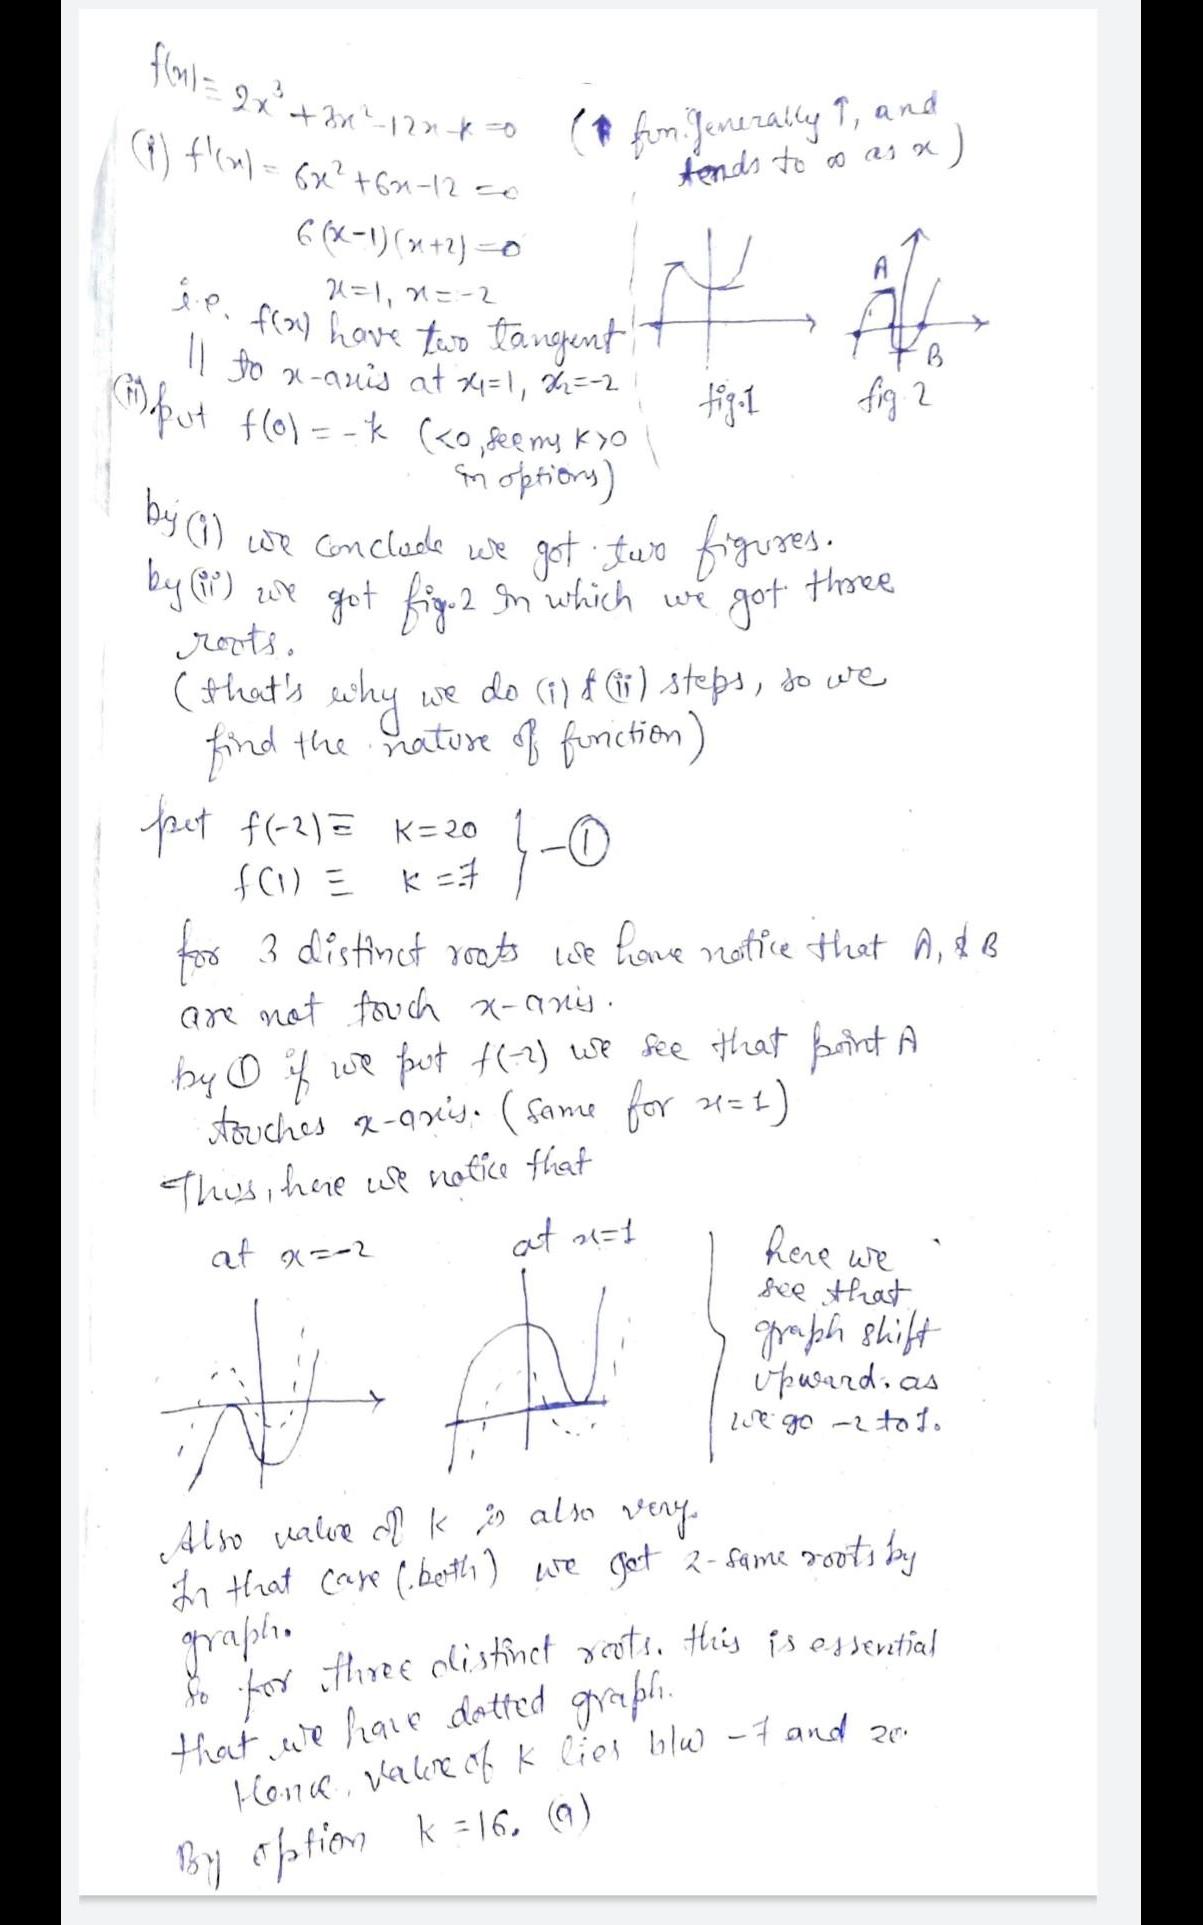 f(x) ≡ 2x³ + 3x² - 12x - k = 0 (↑ fun. generally ↑, and
tends to ∞ as x)
(i) f'(x) = 6x² + 6x - 12 = 0
6(x-1)(x+2) = 0
x=1, x=-2
i.e. f(x) have two tangent
|| to x-axis at x₁=1, x₂=-2
fig.1
A
B
fig. 2
(ii) put f(0) = -k (<0, seeing k>0
in options)
by (i) we conclude we got two figures.
by (ii) we got fig.2 in which we got three
roots.
(that's why we do (i) & (ii) steps, so we
find the nature of function)
put f(-2) ≡ k=20
f(1) ≡ k=-7 } - ①
for 3 distinct roots we have notice that A, & B
are not touch x-axis.
by ① if we put f(-2) we see that point A
touches x-axis. (same for x=1)
Thus, here we notice that
at x=-2
at x=1
here we
see that
graph shift
upward. as
we go -2 to 1.
Also value of k is also very.
In that case (both) we get 2-same roots by
graph.
So for three distinct roots. this is essential
that we have dotted graph.
Hence, value of k lies b/w -7 and 20.
By option k = 16. (a)